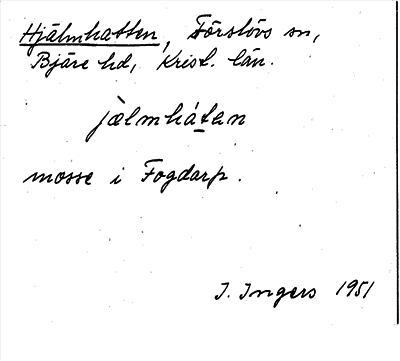 Hjälmhatten, Förslövs sn,
Bjäre hd, Krist. län.
jàlmhátan
mosse i Fogdarp.
I. Ingers 1951